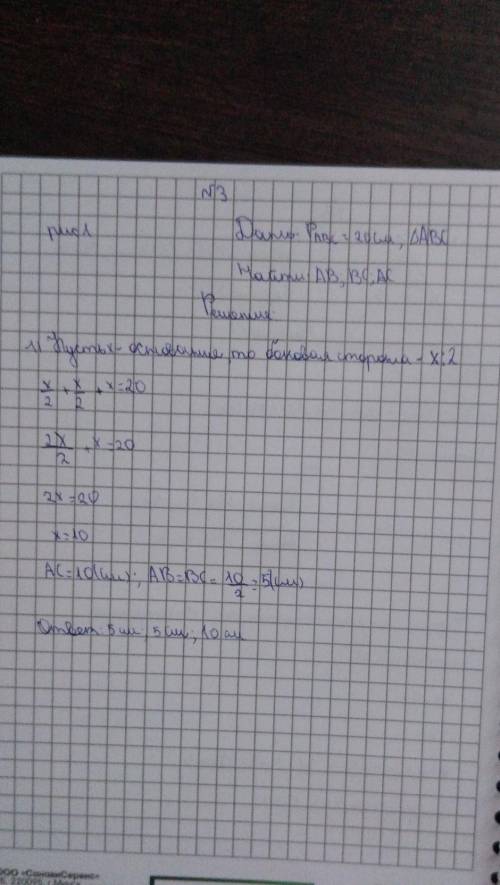 №3
рис1 Дано: Pавс = 20см, △ABC
Найти: AB, BC, AC
Решение
1) Пусть x - основание, то боковая сторона - x:2
x/2 + x/2 + x = 20
2x/2 + x = 20
2x = 20
x = 10
AC = 10(см); AB = BC = 10/2 = 5(см)
Ответ: 5см, 5см; 10см
ООО «СановиСервис»